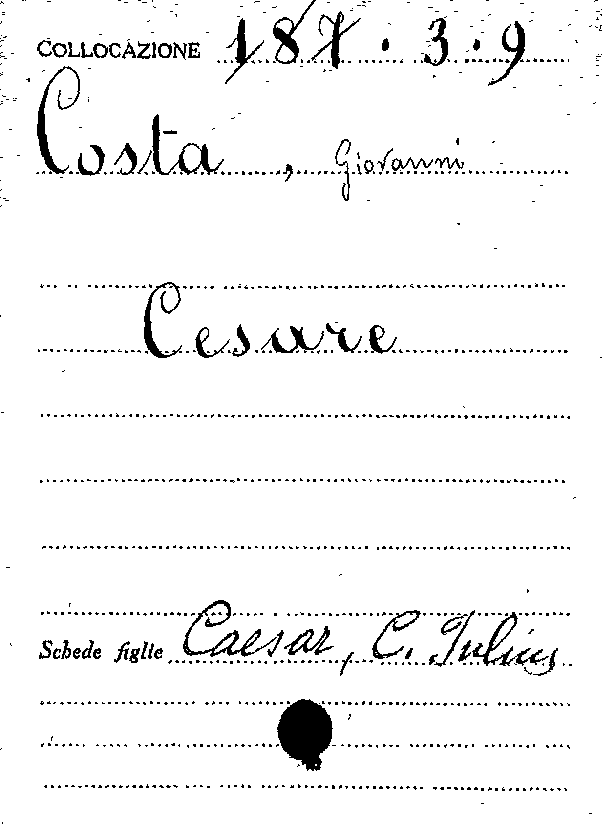 COLLOCAZIONE 187.3.9
Costa, Giovanni
Cesare
Schede figlie Caesar, C. Iulius